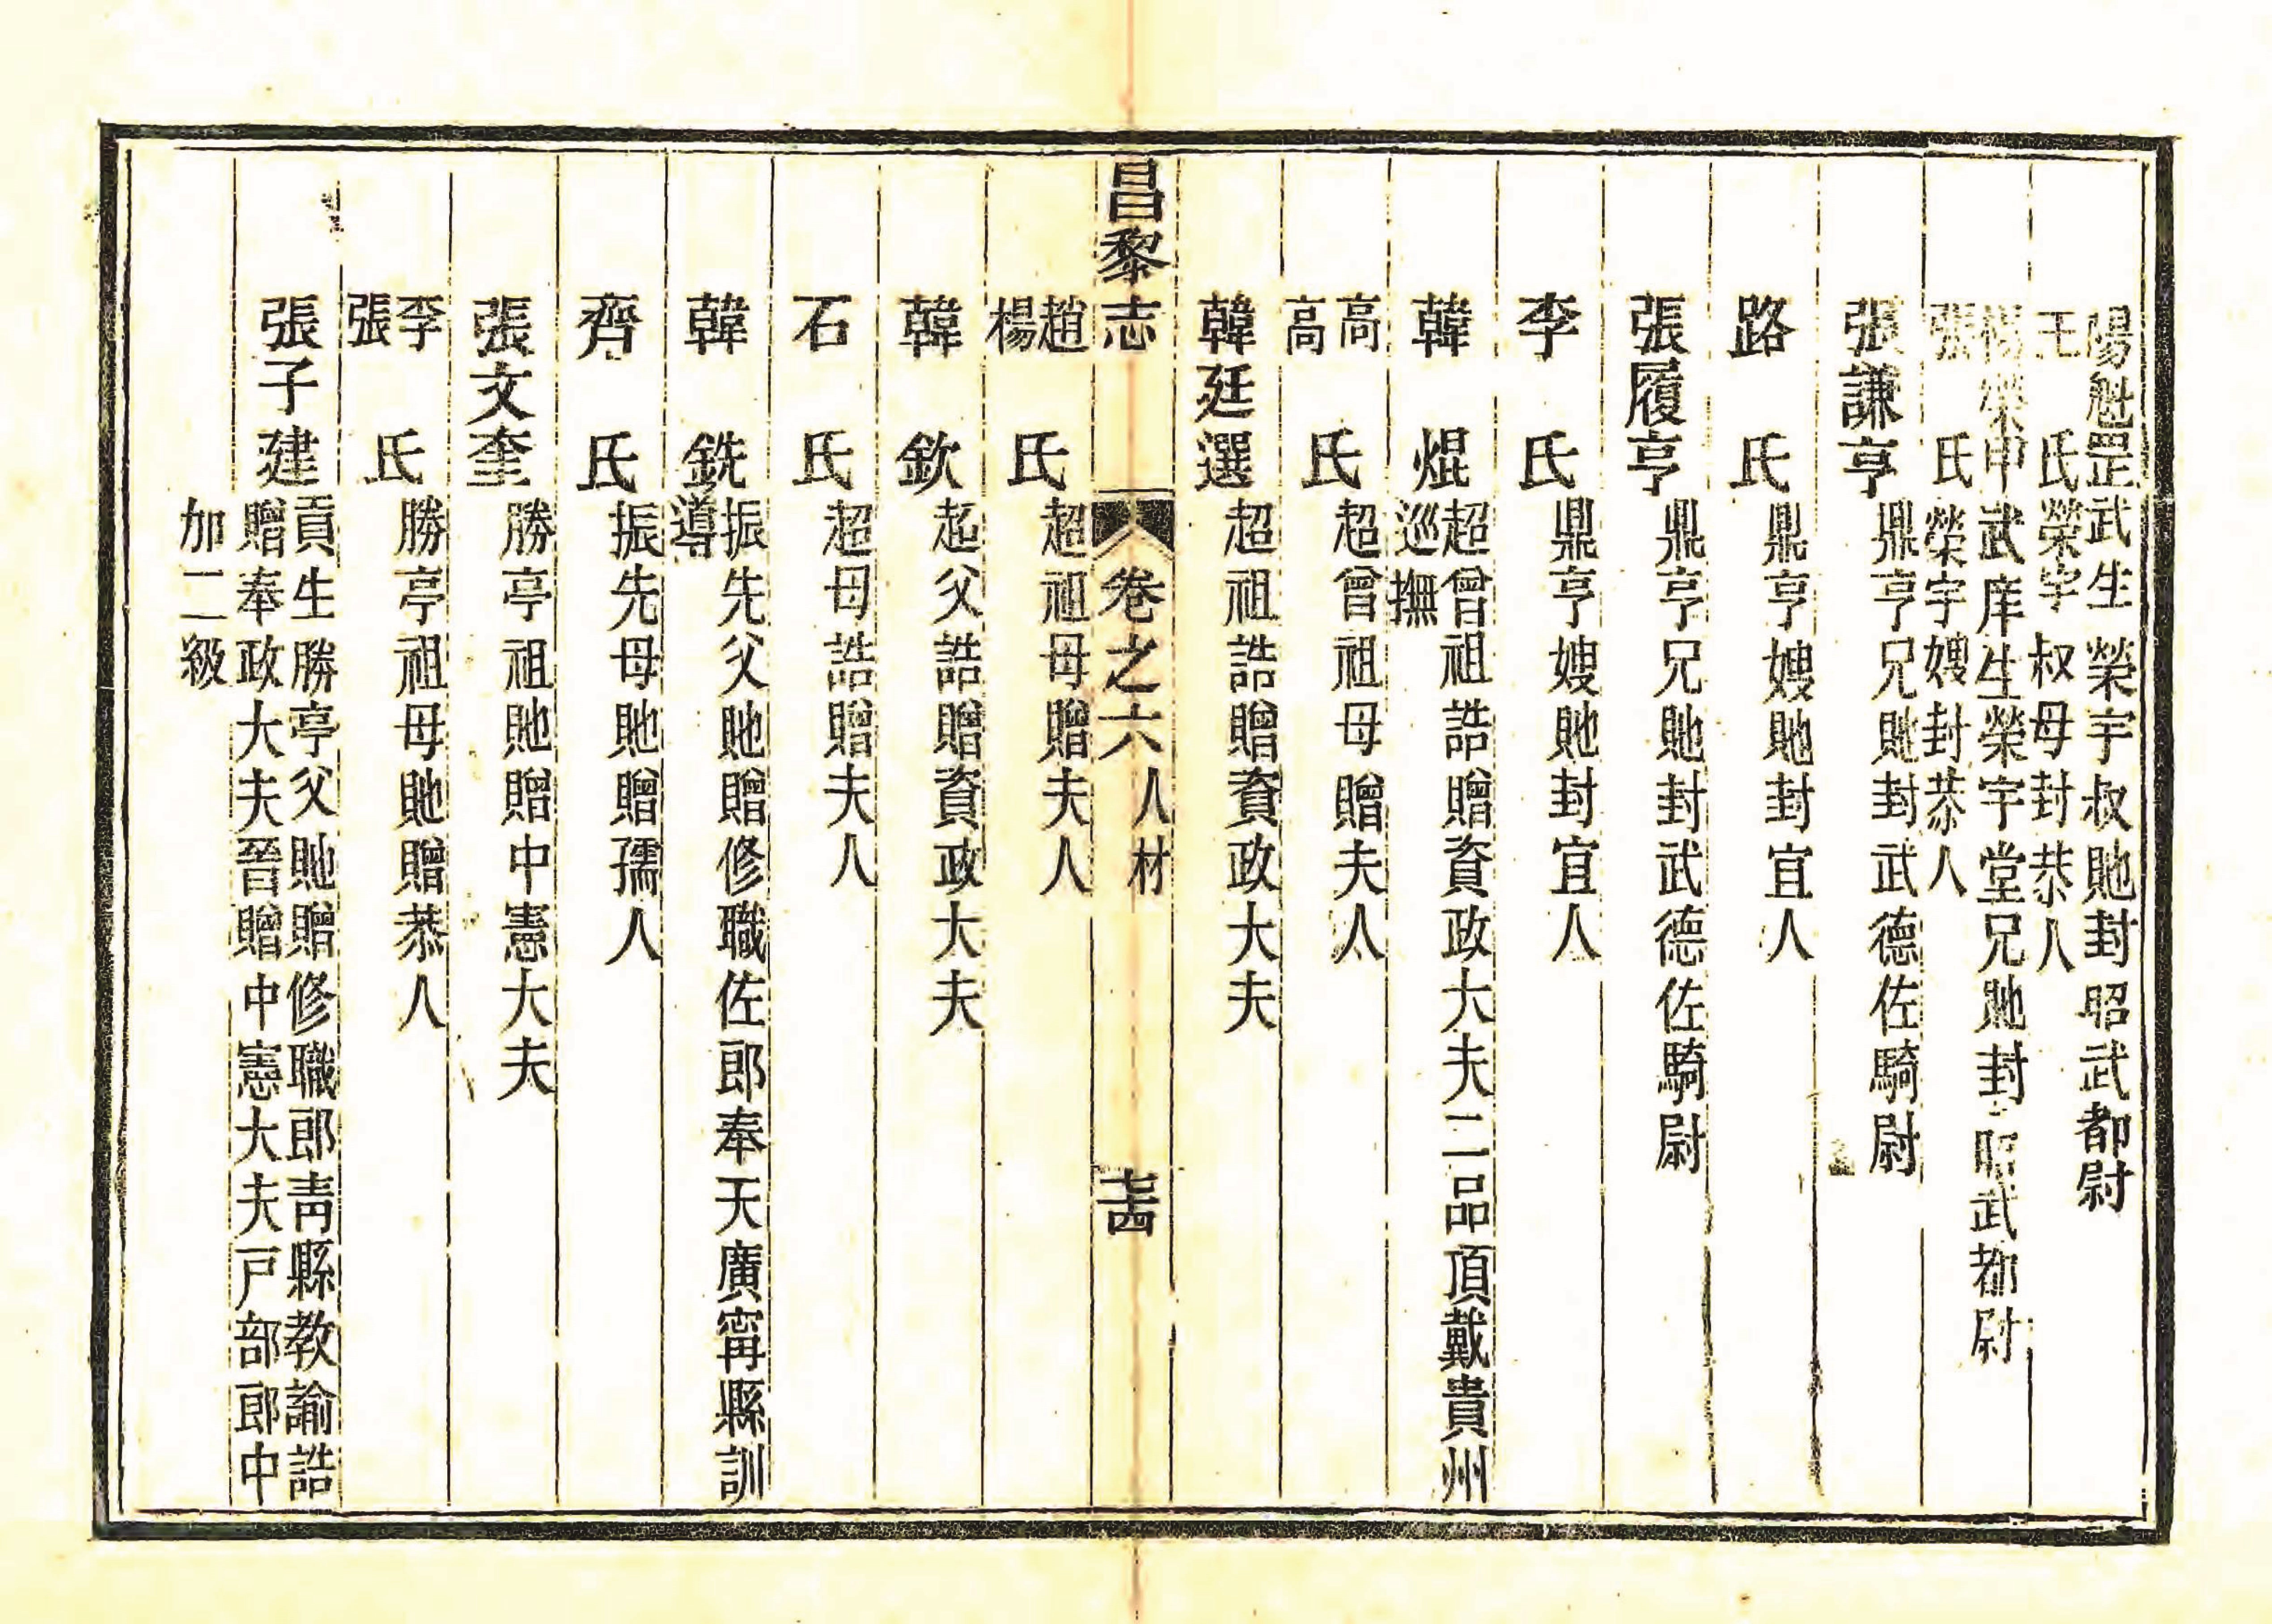 陽魁罡武生榮宇叔貤封昭武都尉
王氏榮宇叔母封恭人
楊榮甲武庠生榮宇堂兄貤封昭武都尉
張氏榮宇嫂封恭人
張謙亨鼎亨兄貤封武德佐騎尉
路氏鼎亨嫂貤封宜人
張履亨鼎亨兄貤封武德佐騎尉
李氏鼎亨嫂貤封宜人
韓焜超曾祖誥贈資政大夫二品頂戴貴州
巡撫
高高氏超曾祖母贈夫人
韓廷選超祖誥贈資政大夫
昌黎志 卷之六 人材 七十四
趙楊氏超祖母贈夫人
韓欽超父誥贈資政大夫
石氏超母誥贈夫人
韓銑振先父貤贈修職佐郎奉天廣甯縣訓
導
齊氏振先母貤贈孺人
張文奎勝亭祖貤贈中憲大夫
李張氏勝亭祖母貤贈恭人
張子建貢生勝亭父貤贈修職郎青縣教諭誥
贈奉政大夫晉贈中憲大夫戸部郎中
加二級